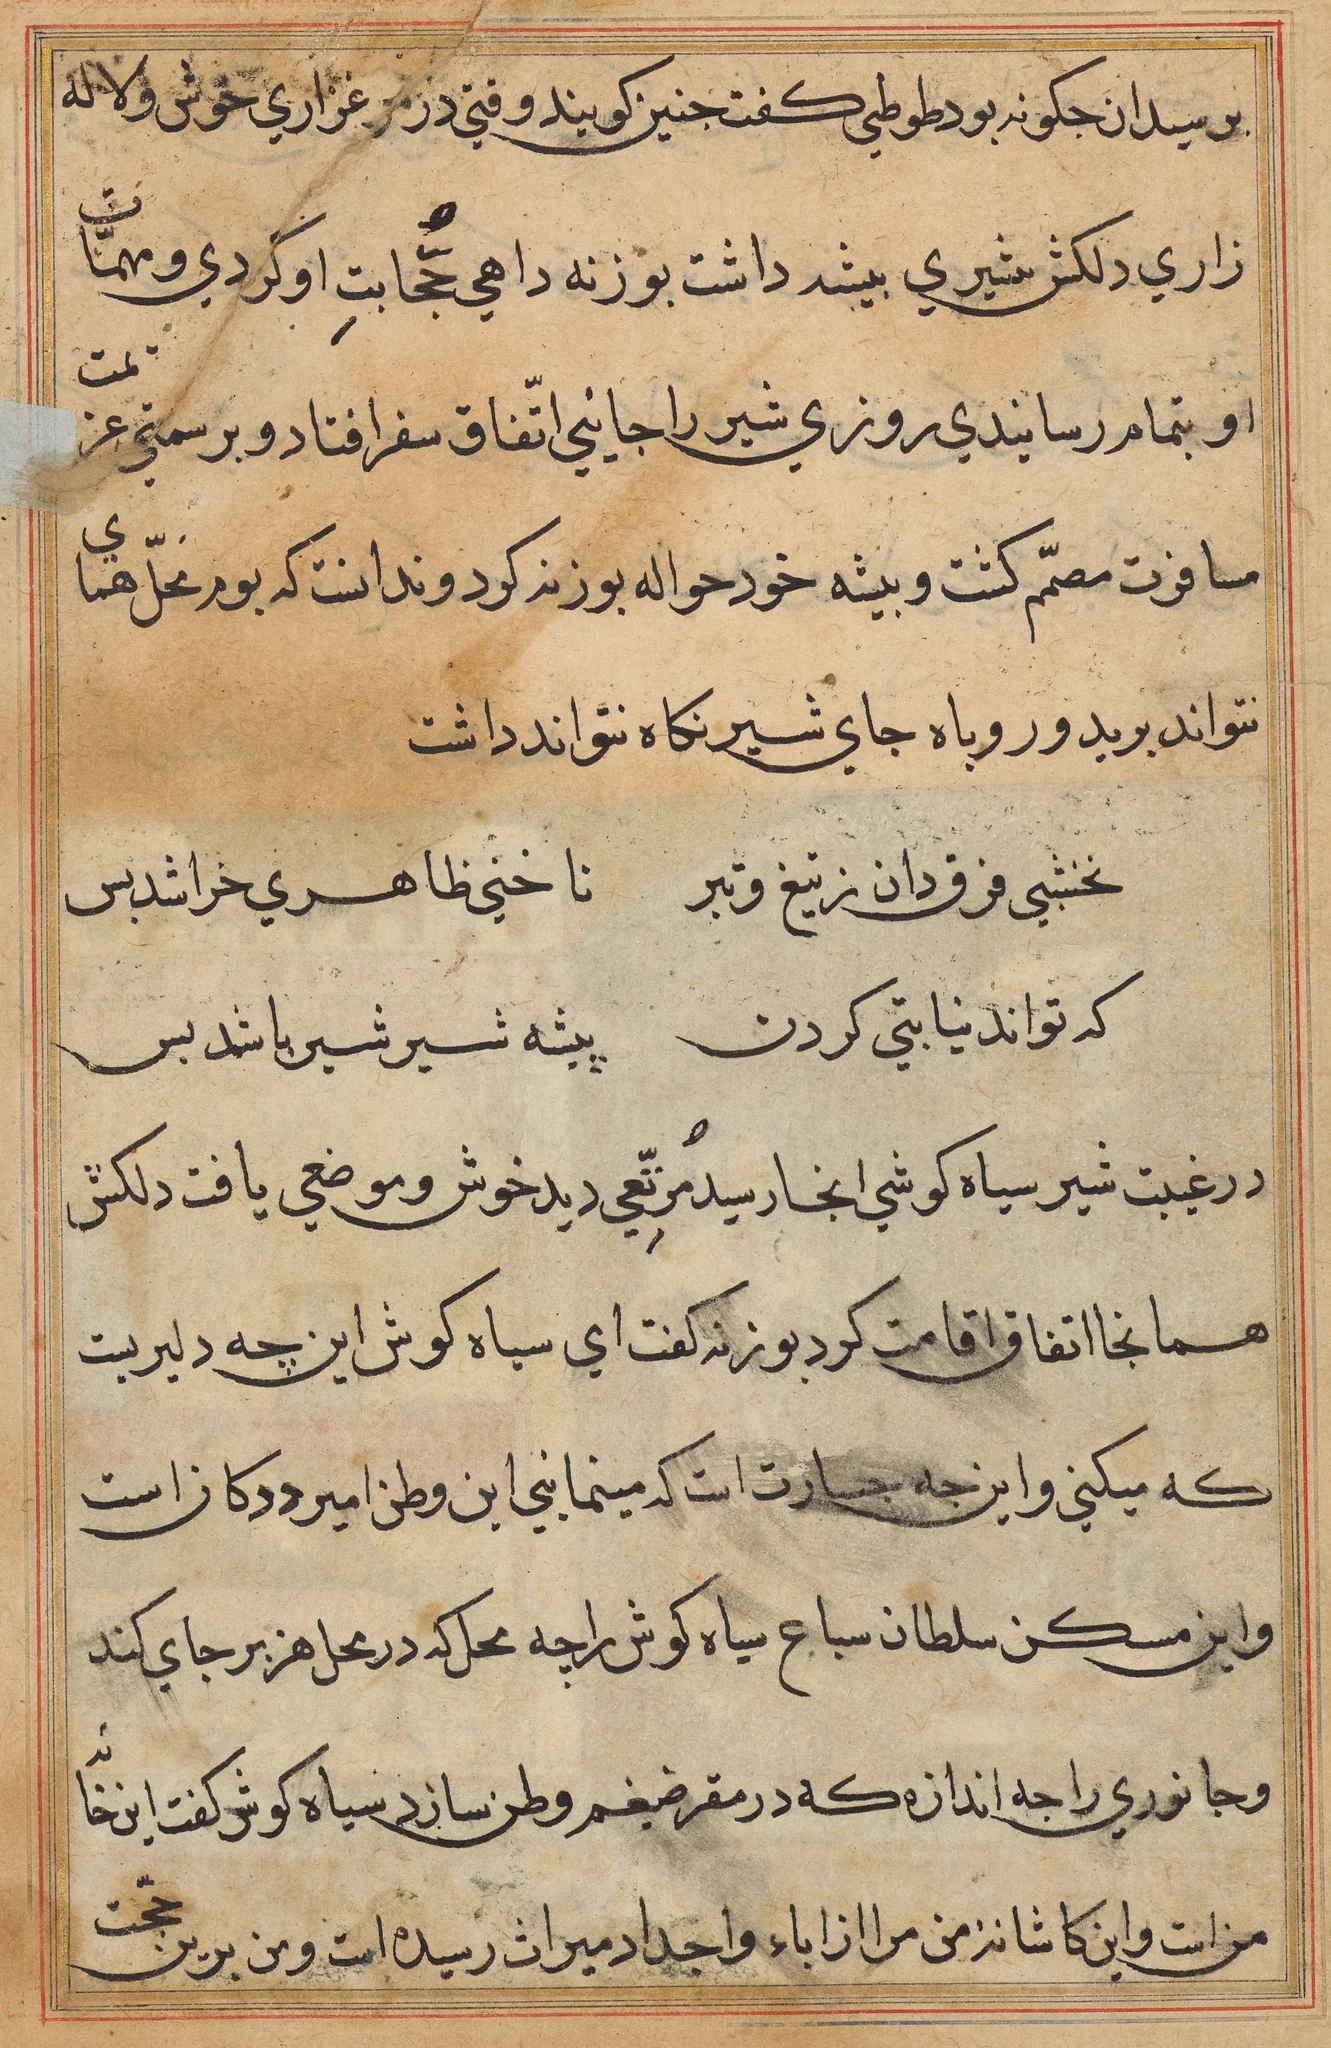 برسید ان جکونه بود طوطی کفت جنین کویند وقتی در مرغزاری خوش و لاله
زاری دلکش شیری بیشه داشت بوزنه داهی حُجّابتِ او کردی و مهمّات
او بتمام رسانیدی روزی شیر را جایی اتّفاق سفر افتاد و بر سمتی عزیمت
مسافرت مصمّم کشت و بیشه خود حواله بوزنه کرد و ندانست که بوم محلّ همای
نتواند برید و روباه جای شیر نکاه نتواند داشت
نخشبی فرق دان ز تیغ و تبر ناخنی ظاهری خراشد بس
که تواند نیابتی کردن پیشه شیر شیر باشد بس
در غیبت شیر سیاه کوشی انجا رسید مُرتّعِی دید خوش و موضعی یافت دلکش
همانجا اتفاق اقامت کرد بوزنه کفت ای سیاه کوش این چه دلیریست
که میکنی و این جه جسارت است که مینمایی این وطن امیر ددکان است
و این مسکن سلطان سباع سیاه کوش را چه محل که در محل هزبر جای کند
و جانوری را جه اندازه که در مقر ضیغم وطن سازد سیاه کوش کفت این خانه
من است و این کاشانه من مرا از اباء و اجداد میراث رسیده است و من برین حجّت